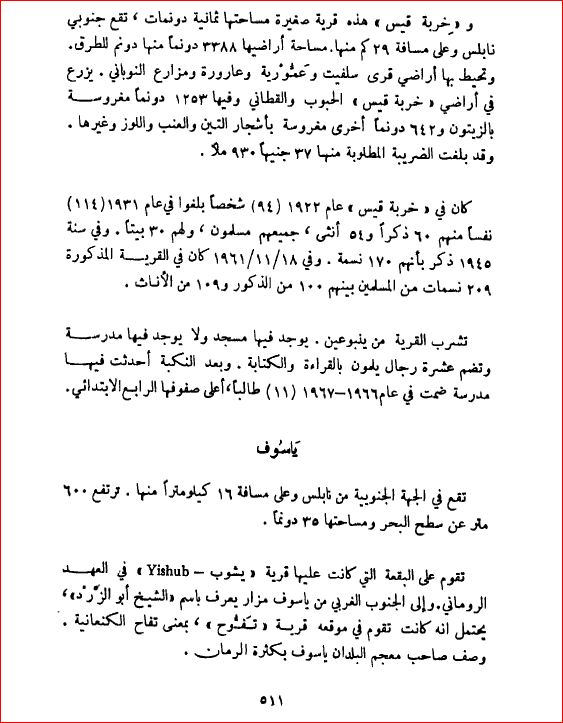 و « خربة قيس » هذه قرية صغيرة مساحتها ثمانية دونمات ، تقع جنوبي
نابلس وعلى مسافة ٢٩ كم منها. مساحة أراضيها ٣٣٨٨ دونماً منها دونم للطرق.
وتحيط بها أراضي قرى سلفيت وعَمُّورْية وعارورة ومزارع النوباني . يزرع
في أراضي « خربة قيس » الحبوب والقطاني وفيها ١٢٥٣ دونماً مغروسة
بالزيتون و ٦٤٢ دونماً أخرى مغروسة بأشجار التين والعنب واللوز وغيرها .
وقد بلغت الضريبة المطلوبة منها ٣٧ جنيهاً ٩٣٠ ملاً .
كان في « خربة قيس » عام ١٩٢٢ (٩٤) شخصاً بلغوا في عام ١٩٣١ (١١٤)
نفساً منهم ٦٠ ذكراً و٥٤ أنثى ، جميعهم مسلمون ، ولهم ٣٠ بيتاً . وفي سنة
١٩٤٥ ذكر بأنهم ١٧٠ نسمة . وفي ١٩٦١/١١/١٨ كان في القرية المذكورة
٢٠٩ نسمات من المسلمين بينهم ١٠٠ من الذكور و١٠٩ من الأناث .
تشرب القرية من ينبوعين . يوجد فيها مسجد ولا يوجد فيها مدرسة
وتضم عشرة رجال يلمون بالقراءة والكتابة . وبعد النكبة أحدثت فيها
مدرسة ضمت في عام ١٩٦٦–١٩٦٧ (١١) طالباً، أعلى صفوفها الرابع الابتدائي.
يَاسُوف
تقع في الجهة الجنوبية من نابلس وعلى مسافة ١٦ كيلومتراً منها . ترتفع ٦٠٠
متر عن سطح البحر ومساحتها ٣٥ دونماً .
تقوم على البقعة التي كانت عليها قرية « يشوب – Yishub » في العهد
الروماني. وإلى الجنوب الغربي من ياسوف مزار يعرف باسم «الشيخ أبو الزَّرْد»،
يحتمل انه كانت تقوم في موقعه قرية « تَفُّوح » ، بمعنى تفاح الكنعانية .
وصف صاحب معجم البلدان ياسوف بكثرة الرمان .
٥١١